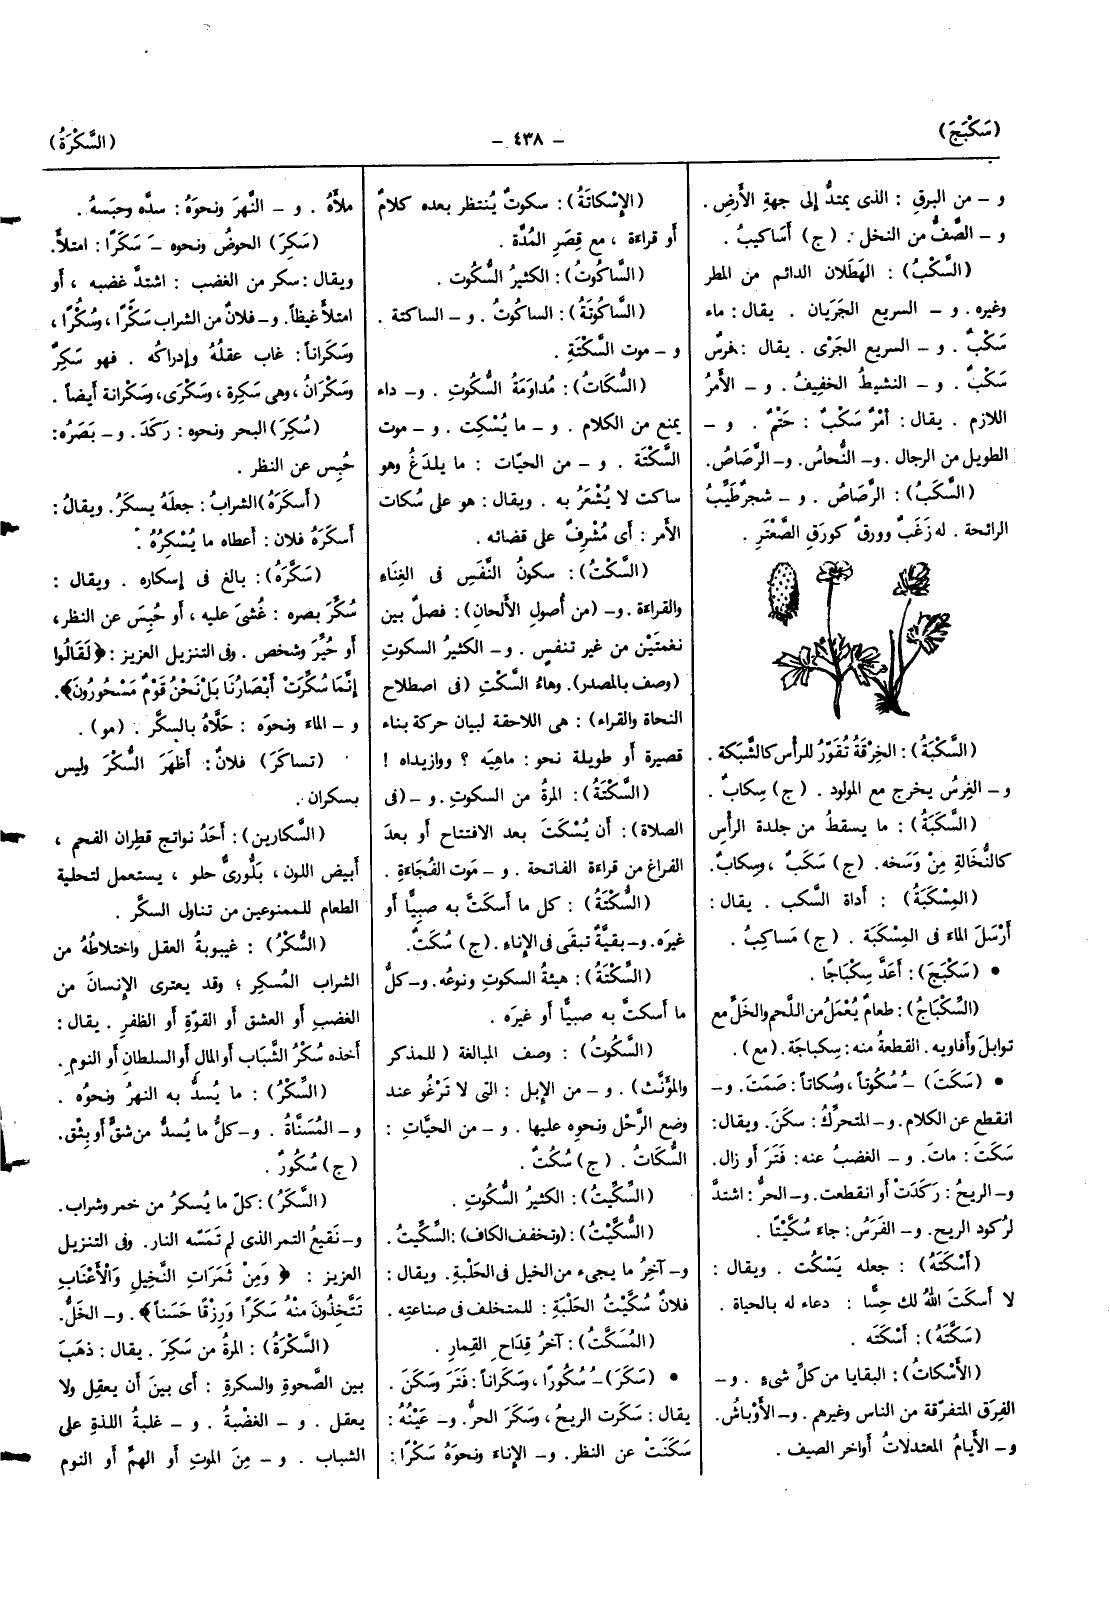 (سَكْبَجَ)
– ٤٣٨ –
(السَّكْرَةُ)
و – من البرقِ : الذى يمتدُّ إلى جهةِ الأَرضِ .
و – الصَّفُّ من النخل . (ج) أَساكيبُ .
(السَّكْبُ) : الهَطَلان الدائم من المطر
وغيره . و – السريع الجَرَيان . يقال : ماء
سَكْبٌ . و – السريع الجَرْى . يقال : فرسٌ
سَكْبٌ . و – النشيطُ الخفيفُ . و – الأَمرُ
اللازم . يقال : أَمرٌ سَكْبٌ : حَتْمٌ . و –
الطويل من الرجال . و – النُّحاسُ . و– الرَّصاصُ.
(السَّكَبُ) : الرَّصاصُ . و – شجرٌ طَيِّبُ
الرائحة . له زَغَبٌ وورقٌ كورَقِ الصَّعْتَرِ .
(السَّكْبَةُ) : الخِرْقَةُ تُقَوَّرُ للرأْس كالشَّبَكة .
و – الغِرسُ يخرج مع المولود . (ج) سِكابٌ .
(السَّكَبَةُ) : ما يسقطُ من جلدة الرأْسِ
كالنُّخالةِ مِنْ وَسَخه. (ج) سَكَبٌ ، وسِكابٌ.
(المِسْكَبَةُ) : أَداة السَّكب . يقال :
أَرْسَلَ الماءَ فى المِسْكَبَة . (ج) مَساكِبُ .
• (سَكْبَجَ) : أَعَدَّ سِكْبَاجًا .
(السِّكْبَاجُ) : طعامٌ يُعْمَلُ من اللَّحم والخَلِّ مع
توابلَ وأَفاويه . القطعةُ منه : سِكباجَة . (مع) .
• (سَكَتَ) ـُ سُكُوتاً ، وسُكاتاً : صَمَتَ . و –
انقطع عن الكلام . و – المتحرِّكُ : سكَنَ . ويقال :
سَكَتَ : ماتَ . و – الغضبُ عنه : فَتَرَ أَو زال .
و – الريحُ : رَكَدَتْ أَو انقطعت . و – الحرُّ : اشتدَّ
لرُكود الريح . و – الفَرَسُ : جاءَ سُكَّيْتًا .
(أَسْكَتَهُ) : جعله يَسْكُت . ويقال :
لا أَسكَتَ اللهُ لك حِسًّا : دعاء له بالحياة .
(سَكَّتَهُ) : أَسْكَتَه .
(الأَسْكاتُ) : البقايا من كلِّ شىءٍ . و –
الفِرَق المتفرّقة من الناس وغيرهم . و – الأَوْباشُ .
و – الأَيامُ المعتدلاتُ أَواخر الصيف .
(الإِسْكاتَةُ) : سكوتٌ يُنتظر بعده كلامٌ
أَو قراءة ، مع قِصَرِ المُدَّة .
(السَّاكوتُ) : الكثيرُ السُّكوت .
(السَّاكُوتَةُ) : الساكوتُ . و – الساكتة .
و – موت السَّكْتَةِ .
(السُّكَاتُ) : مُداوَمَةُ السُّكوتِ . و – داء
يمنع من الكلام . و – ما يُسْكِت . و – موت
السَّكْتَة . و – من الحيّات : ما يلدَغُ وهو
ساكت لا يُشْعَرُ به . ويقال : هو على سُكات
الأَمر : أَى مُشْرِفٌ على قضائه .
(السَّكْتُ) : سكونُ النَّفَسِ فى الغِنَاءِ
والقراءة . و – (من أُصول الأَلحان) : فصلٌ بين
نغمتَيْن من غير تنفسٍ . و – الكثيرُ السكوتِ
(وصف بالمصدر). وهاءُ السَّكْتِ (فى اصطلاح
النحاة والقراء) : هى اللاحقة لبيان حركة بناء
قصيرة أَو طويلة نحو : ماهِيَه ؟ ووازيداه !
(السَّكْتَةُ) : المرةُ من السكوتِ . و – (فى
الصلاة) : أَن يُسْكَتَ بعد الافتتاح أَو بعدَ
الفراغ من قراءة الفاتحة . و – مَوت الفُجَاءَةِ .
(السُّكْتَةُ) : كل ما أَسكَتَّ به صبيًّا أَو
غيرَه . و – بقيَّةٌ تبقَى فى الإِناءِ . (ج) سُكَتٌ .
(السِّكْتَةُ) : هيئةُ السكوتِ ونوعُه . و – كلُّ
ما أَسكتَّ به صبيًّا أَو غيرَه .
(السَّكُوتُ) : وصف المبالغة (للمذكر
والمؤنَّث) . و – من الإِبل : التى لا تَرْغُو عند
وضع الرَّحْل ونحوِه عليها . و – من الحيَّاتِ :
السُّكاتُ . (ج) سُكُتٌ .
(السِّكِّيتُ) : الكثيرُ السُّكُوتِ .
(السُّكَّيْتُ) : (وتخفف الكاف) : السِّكِّيتُ .
و – آخِرُ ما يجىء من الخيل فى الحَلْبةِ . ويقال :
فلانٌ سُكَّيْتُ الحَلْبَةِ : للمتخلف فى صناعتِه .
(المُسَكَّتُ) : آخرُ قِدَاحِ القِمارِ .
• (سَكَرَ) ـُ سُكُورًا ، وسَكَراناً : فَتَرَ وسَكَنَ .
يقال : سَكَرت الريحُ ، وسَكَرَ الحرُّ . و – عَيْنُهُ :
سَكَنَتْ عن النظر . و – الإِناءَ ونحوَهُ سَكْرًا :
ملأَهُ . و – النَّهرَ ونحوَهُ : سدَّه وحبَسهُ .
(سَكِرَ) الحوضُ ونحوه ـَ سَكَرًا : امتلأَ .
ويقال : سكر من الغضب : اشتدَّ غضبه ، أَو
امتلأَ غيظاً . و – فلانٌ من الشراب سَكَرًا ، وسُكْرًا ،
وسَكَراناً : غاب عقلُهُ وإِدراكُه . فهو سَكِرٌ
وسَكْرَانُ ، وهى سَكِرة ، وسَكْرَى، وسَكْرانة أَيضاً .
(سُكِرَ) البحر ونحوه : رَكَدَ . و – بَصَرُه :
حُبِس عن النظر .
(أَسكَرَهُ) الشرابُ : جعلَهُ يسكَرُ . ويقالُ :
أَسكَرَهُ فلان : أَعطاه ما يُسْكِرُهُ .
(سَكَّرَهُ) : بالغ فى إِسكاره . ويقال :
سُكِّرَ بصره : غُشىَ عليه ، أَو حُبِسَ عن النظر ،
أَو حُيِّرَ وشخص . وفى التنزيل العزيز : ﴿لَقَالُوا
إِنَّمَا سُكِّرَتْ أَبْصَارُنَا بَلْ نَحْنُ قَوْمٌ مَسْحُورُونَ﴾ .
و – الماءَ ونحوَه : حَلاَّهُ بالسكَّر . (مو) .
(تساكَرَ) فلانٌ : أَظهَرَ السُّكْرَ وليس
بسكران .
(السكارين) : أَحَدُ نواتج قطِران الفحم ،
أَبيض اللون ، بَلُّورىٌّ حلو ، يستعمل لتحلية
الطعام للممنوعين من تناول السكَّر .
(السُّكْرُ) : غيبوبةُ العقل واختلاطُهُ من
الشراب المُسكِر ؛ وقد يعترى الإِنسانَ من
الغضبِ أَو العشق أَو القوّةِ أَو الظفرِ . يقال :
أَخذه سُكْرُ الشَّبَاب أَو المالِ أَو السلطانِ أَو النومِ .
(السِّكْرُ) : ما يُسدُّ به النهرُ ونحوُه .
و – المُسَنَّاةُ . و – كلُّ ما يُسدُّ من شقٍّ أَو بِثْق .
(ج) سُكُورٌ .
(السَّكَرُ) : كلّ ما يُسكرُ من خمر وشراب .
و – نَقيعُ التمر الذى لم تَمَسّه النار . وفى التنزيل
العزيز : ﴿ وَمِنْ ثَمَرَاتِ النَّخِيلِ وَالأَعْنَابِ
تَتَّخِذُونَ مِنْهُ سَكَرًا وَرِزْقًا حَسَناً﴾ . و – الخَلُّ .
(السَّكْرَةُ) : المرةُ من سَكِرَ . يقال : ذهَبَ
بين الصَّحوةِ والسكرةِ : أَى بينَ أَن يعقِل ولا
يعقل . و – الغضْبةُ . و – غلبةُ اللذةِ على
الشباب . و – مِنَ الموتِ أَو الهمِّ أَو النوم